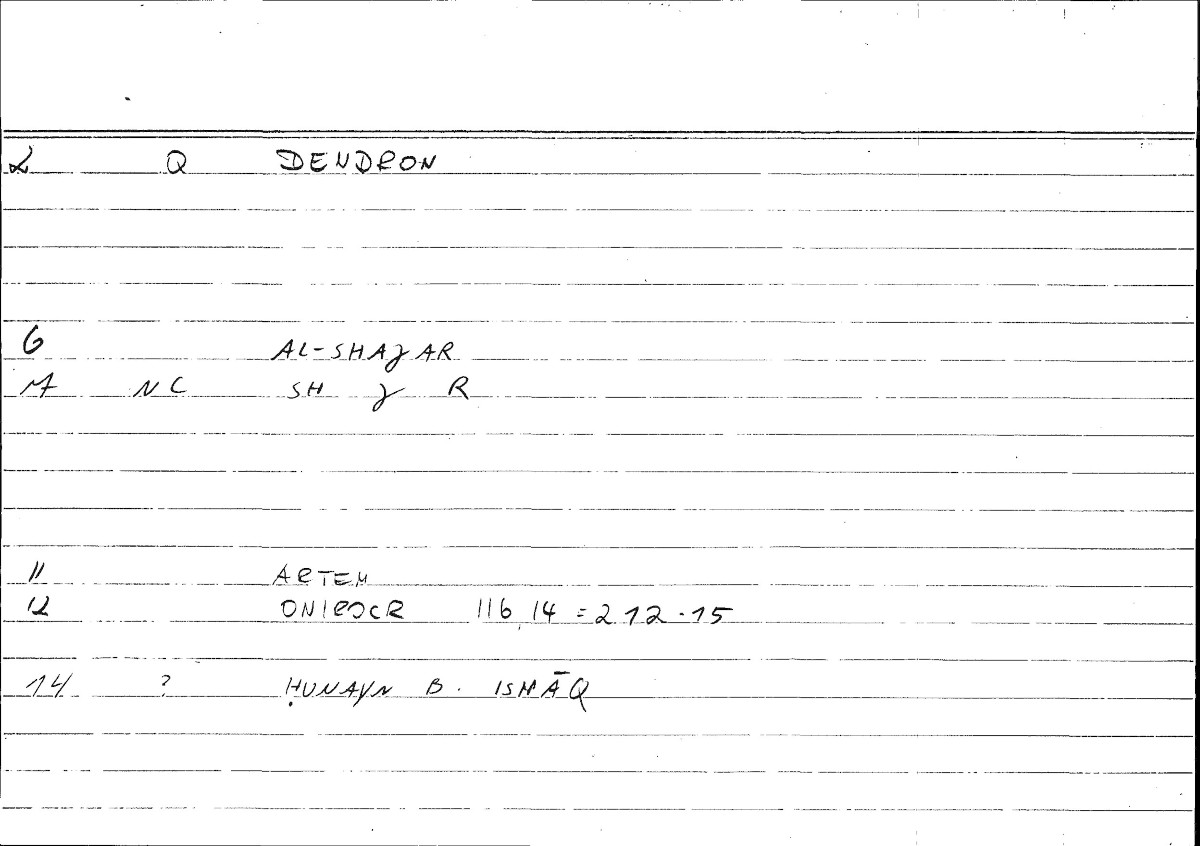 2 Q DENDRON
6 AL-SHAJAR
7 NC SH J R
11 ARTEM
12 ONIROCR 116,14 = 212.15
14 ? ḤUNAYN B. ISHĀQ